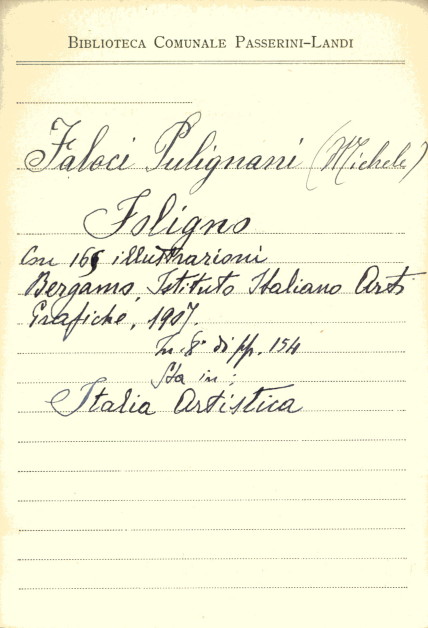 BIBLIOTECA COMUNALE PASSERINI-LANDI
Faloci Pulignani (Michele)
Foligno
Con 165 illustrazioni
Bergamo, Istituto Italiano Arti
Grafiche, 1907.
In-8° di pp. 154
Sta in:
Italia Artistica